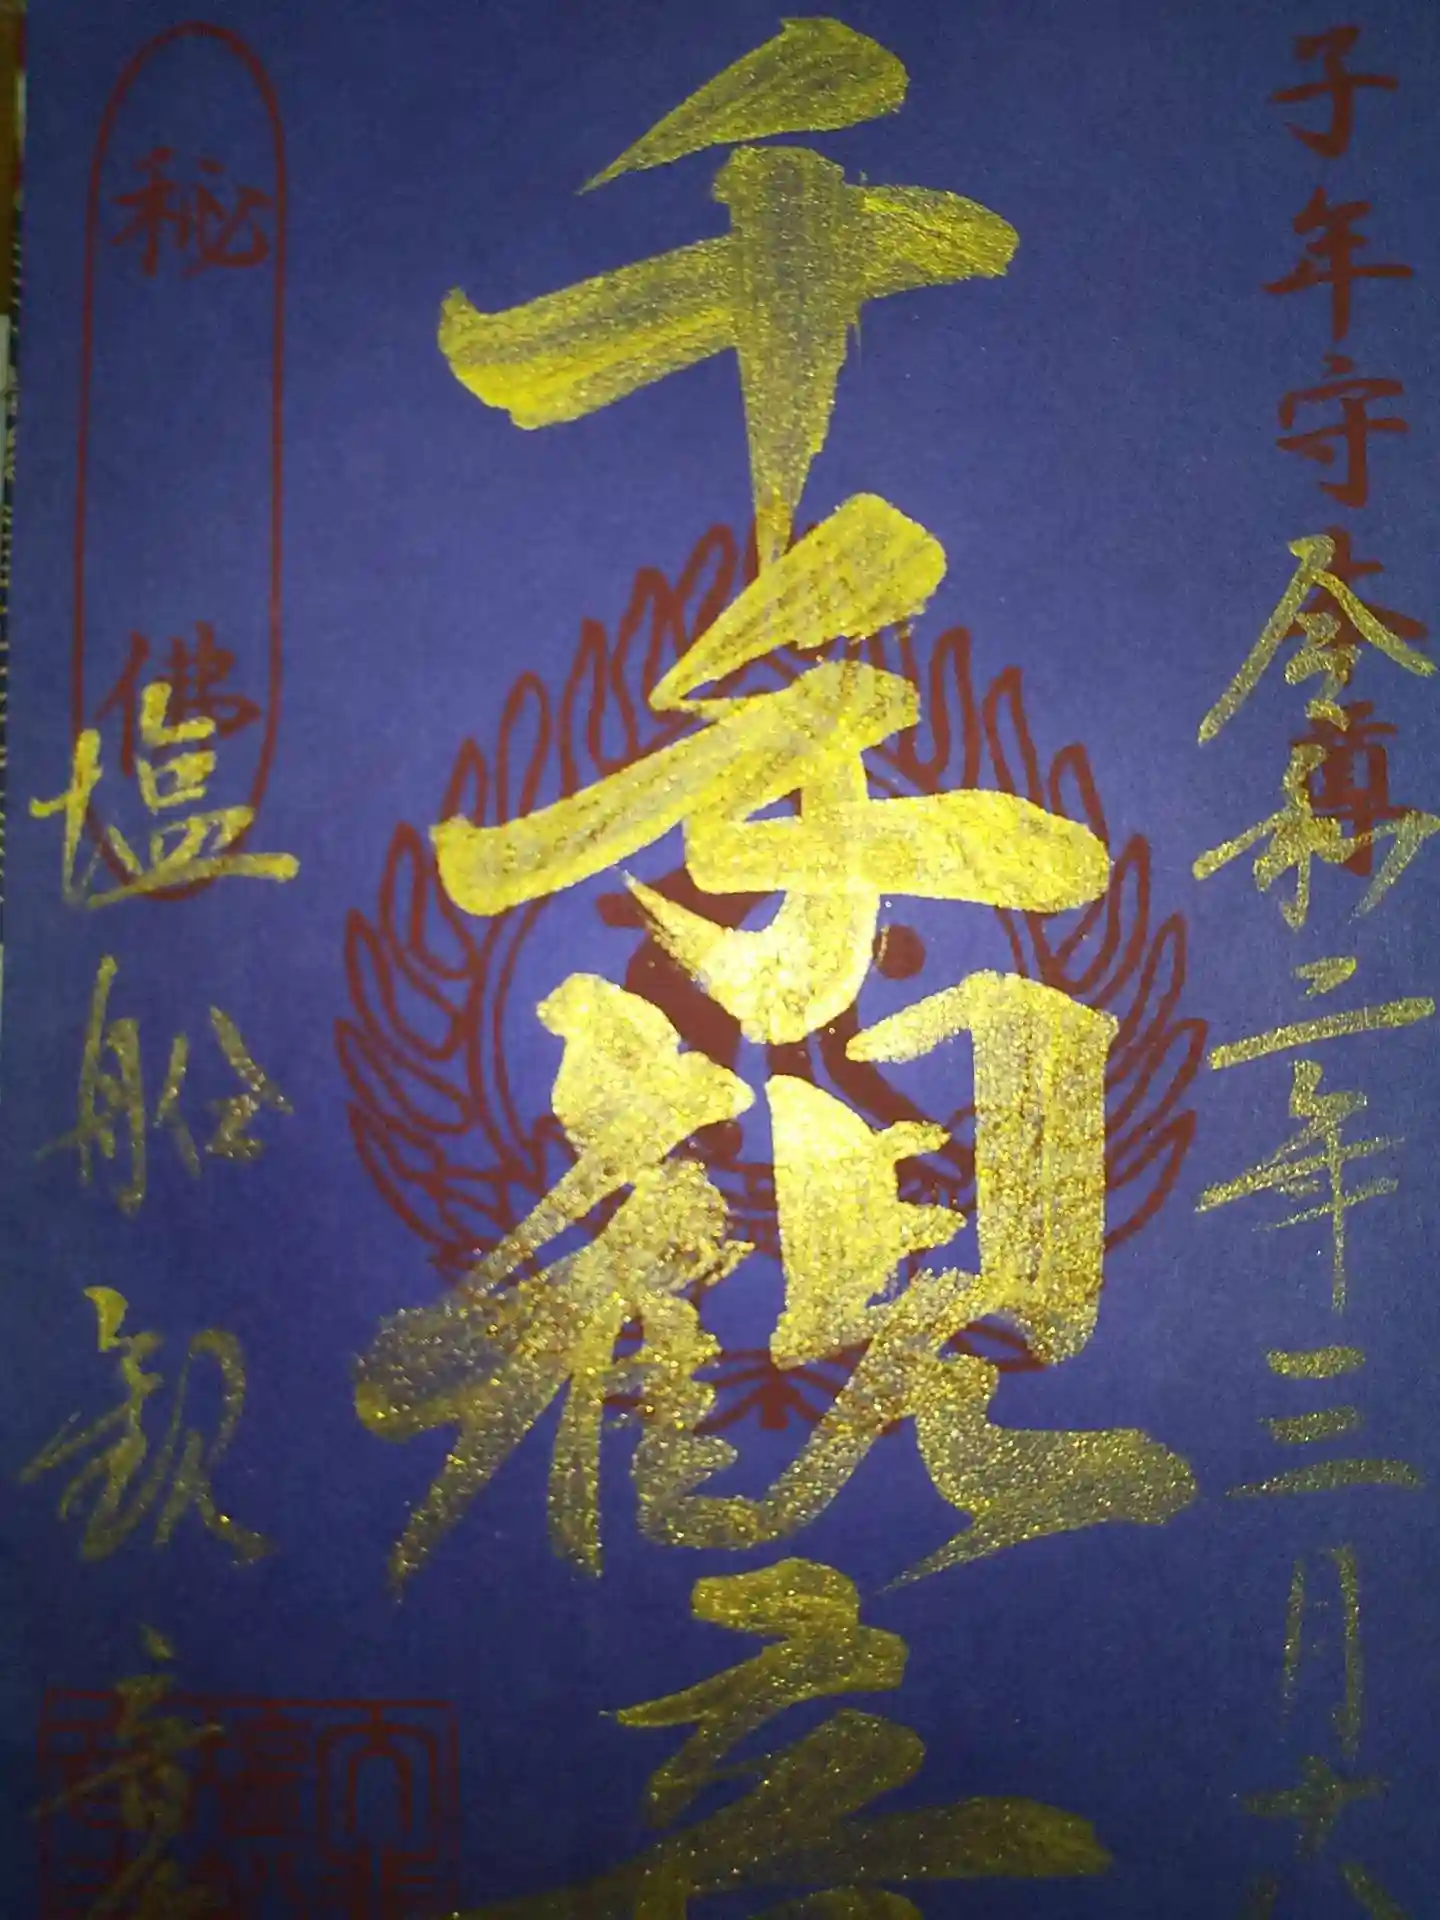 子年守本尊
令和二年三月六
千手観音
秘佛
塩船観音